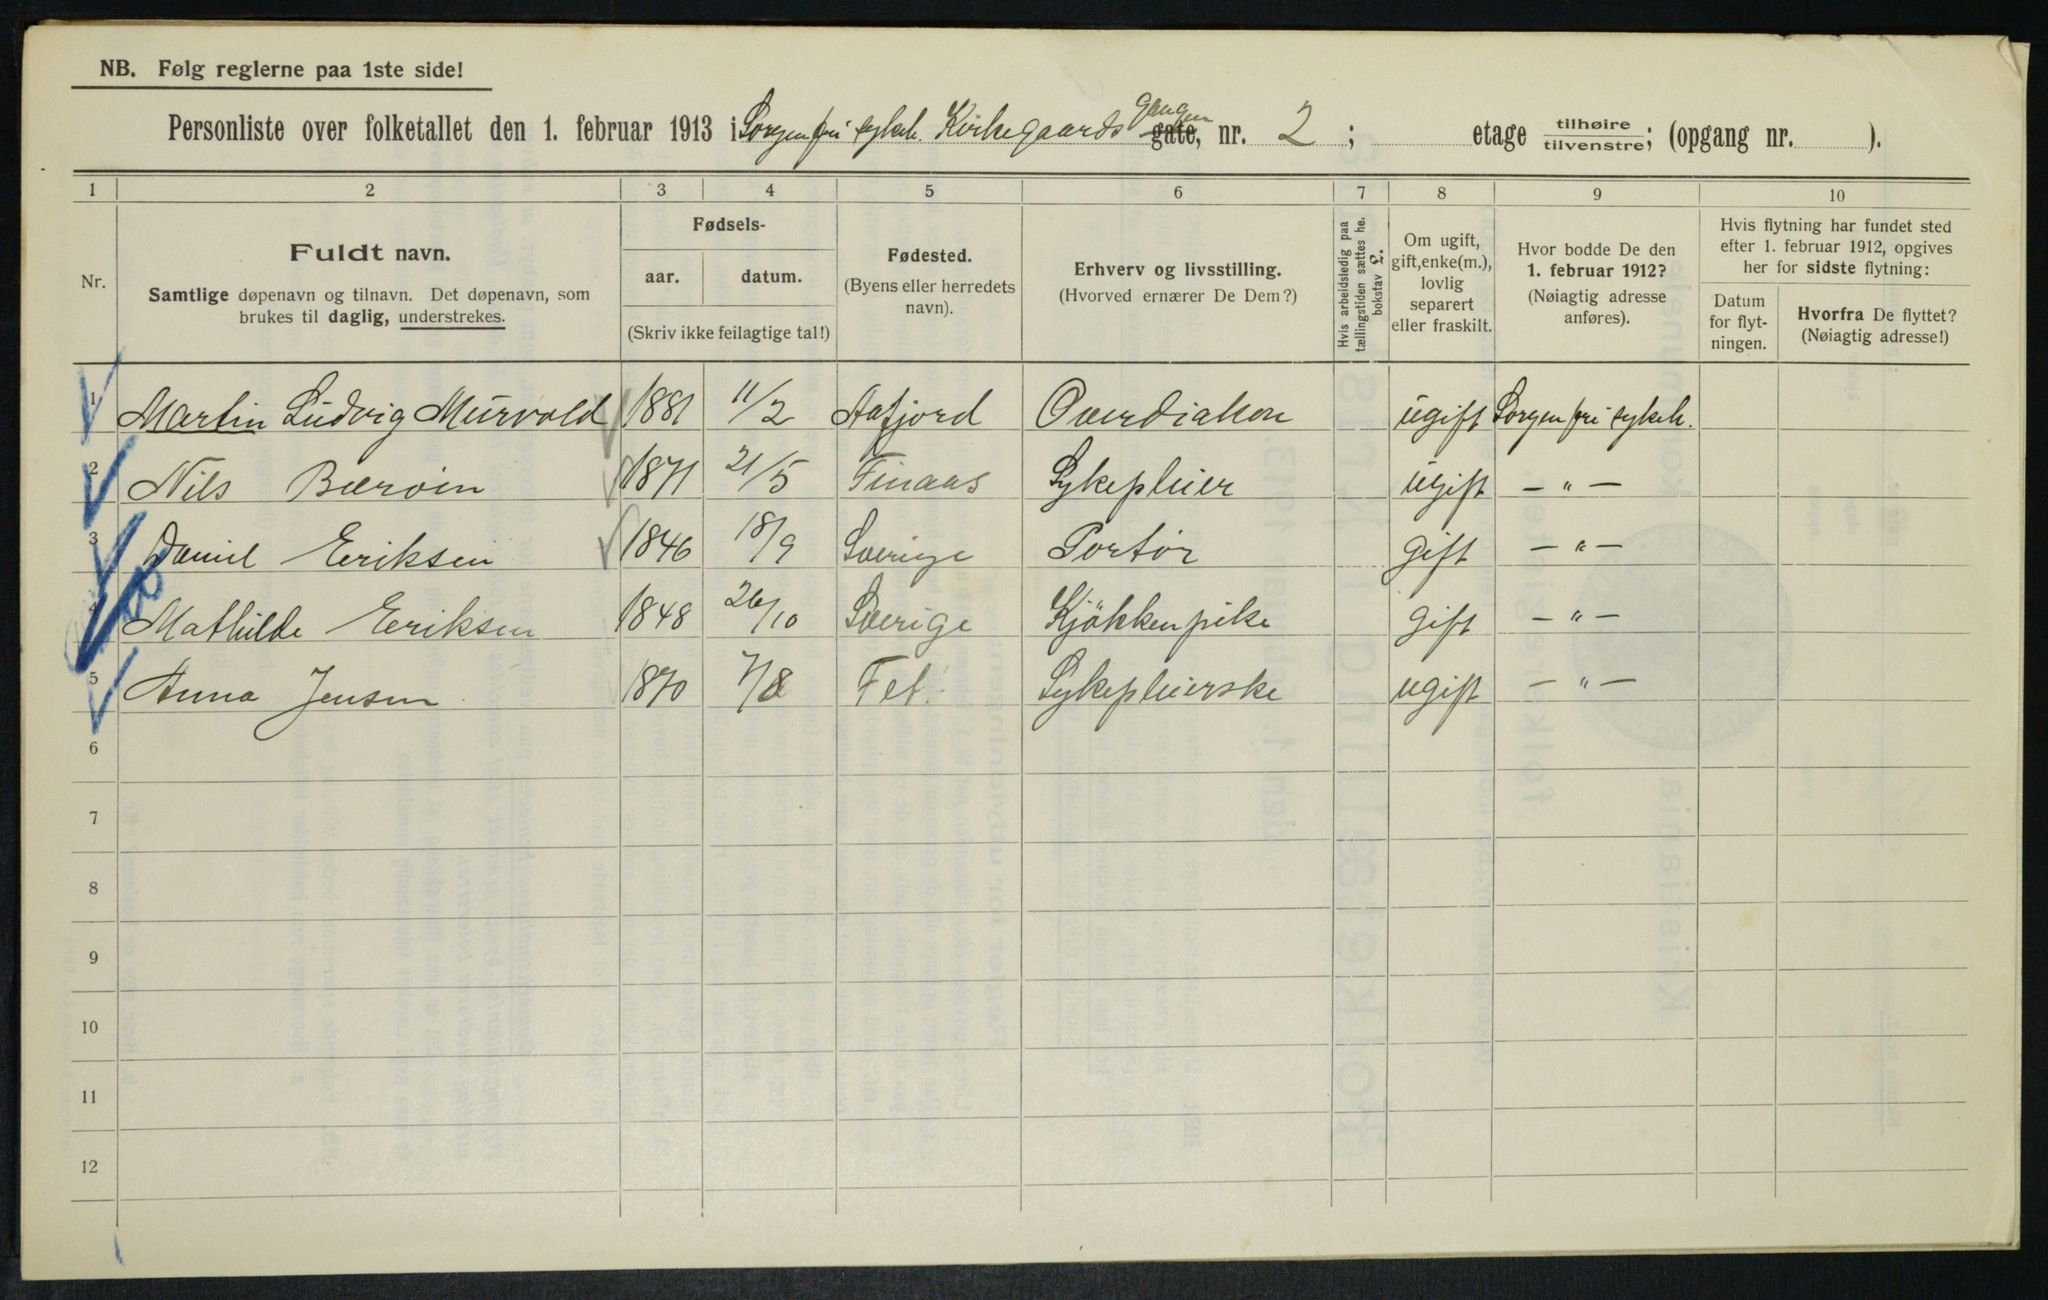 NB. Følg reglerne paa 1ste side!
Personliste over folketallet den 1. februar 1913 i Sorgenfri sykeh. Kirkegaards gangen gate, nr. 2 ; etage tilhøire tilvenstre; (opgang nr. ).
1 2 3 4 5 6 7 8 9 10
Nr.
Fuldt navn.
Samtlige døpenavn og tilnavn. Det døpenavn, som
brukes til daglig, understrekes.
Fødsels-
aar. datum.
(Skriv ikke feilagtige tal!)
Fødested.
(Byens eller herredets
navn).
Erhverv og livsstilling.
(Hvorved ernærer De Dem?)
Hvis arbeidsledig paa
tællingstiden sættes he.
bokstav L.
Om ugift,
gift, enke(m.),
lovlig
separert
eller fraskilt.
Hvor bodde De den
1. februar 1912?
(Nøiagtig adresse
anføres).
Hvis flytning har fundet sted
efter 1. februar 1912, opgives
her for sidste flytning:
Datum
for flyt-
ningen.
Hvorfra De flyttet?
(Nøiagtig adresse!)
1 Martin Ludvig Murvold 1881 11/2 Aafjord Overdiakon ugift Sorgenfri sykeh.
2 Nils Bærøen 1871 21/5 Finaas Sykepleier ugift — " —
3 Daniel Eriksen 1846 18/9 Sverige Portør gift — " —
4 Mathilde Eriksen 1848 26/10 Sverige Kjøkkenpike gift — " —
5 Anna Jensen 1870 7/8 Fet. Sykepleierske ugift — " —
6
7
8
9
10
11
12